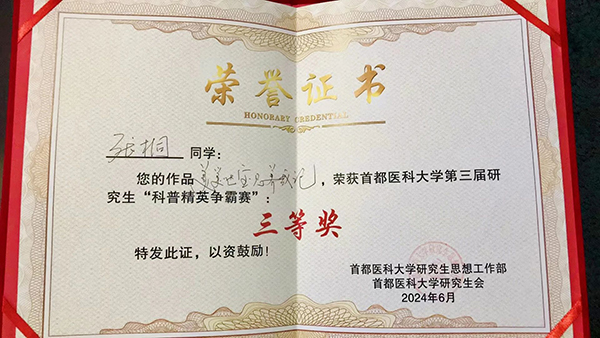 荣誉证书
HONORARY CREDENTIAL
张桐 同学：
您的作品 ，荣获首都医科大学第三届研
究生“科普精英争霸赛”：
三等奖
特发此证，以资鼓励！
首都医科大学研究生思想工作部
首都医科大学研究生会
2024年6月